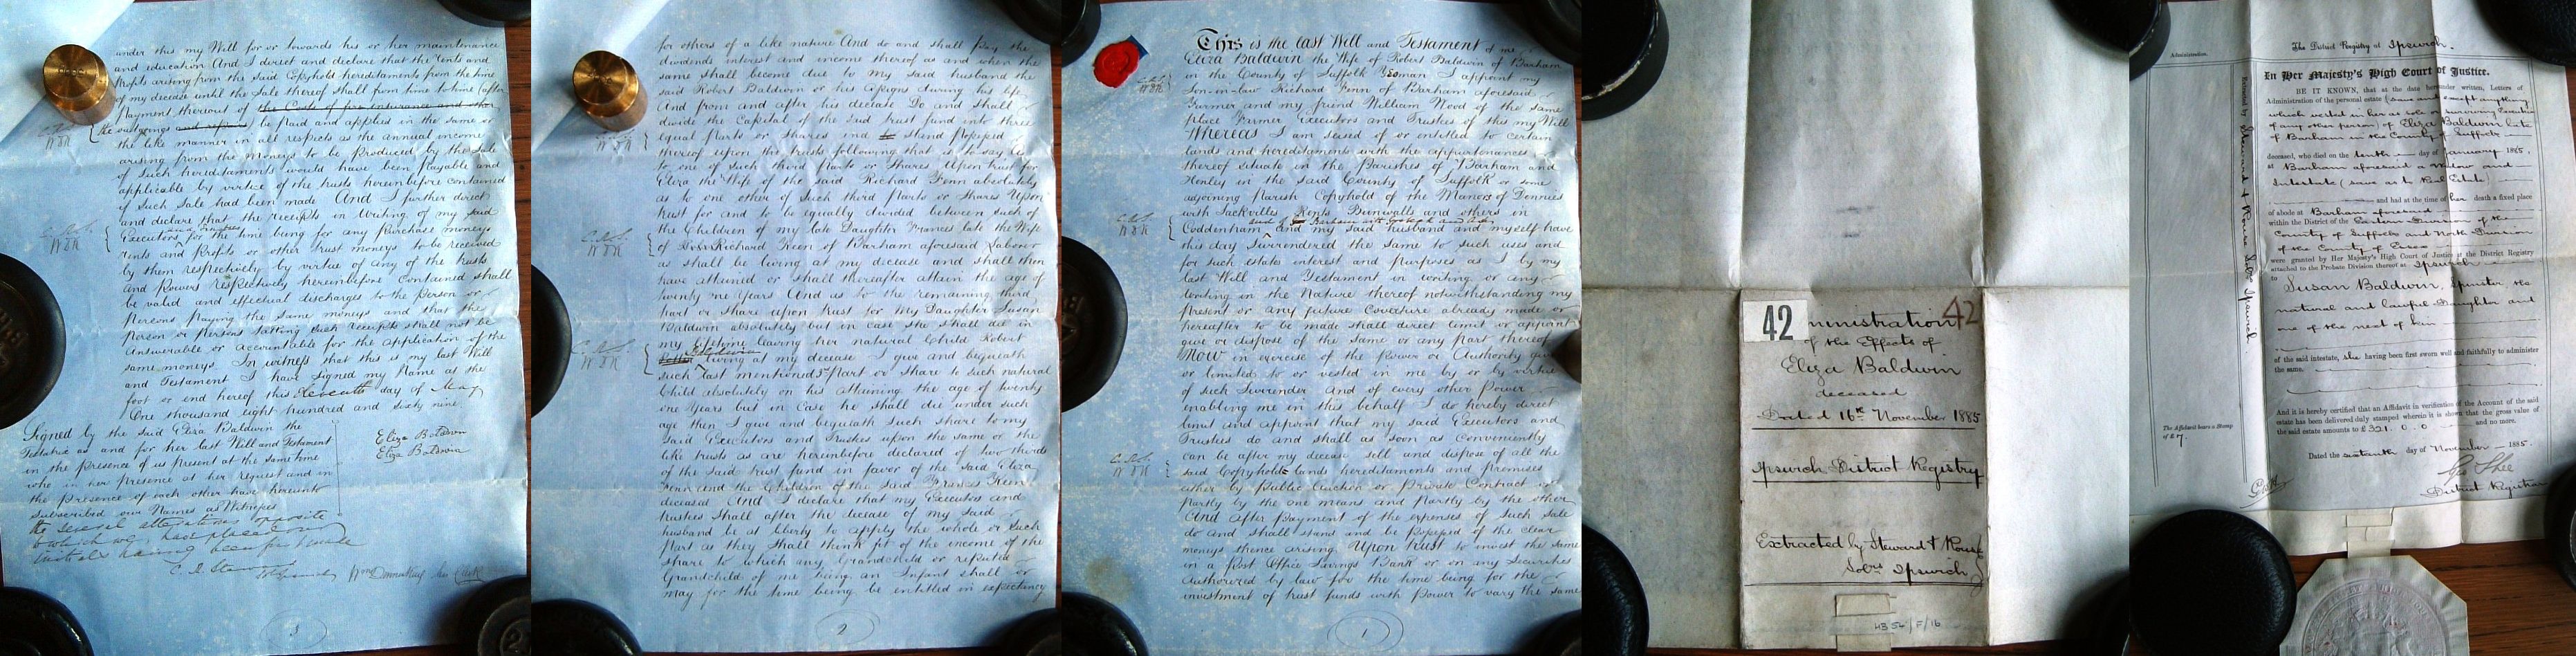 under this my Will for or towards his or her maintenance
and education And I direct and declare that the rents and
profits arising from the said Copyhold hereditaments from the time
of my decease until the Sale thereof shall from time to time (after
payment thereout of the Costs of fire insurance and other
the outgoings and repairs) be paid and applied in the same or
the like manner in all respects as the annual income
arising from the moneys to be produced by the Sale
of such hereditaments would have been payable and
applicable by virtue of the trusts hereinbefore contained
if such Sale had been made And I further direct
and declare that the receipts in writing of my said
and Trustees
Executors for the time being for any purchase moneys
rents and profits or other trust moneys to be received
by them respectively by virtue of any of the trusts
and powers respectively hereinbefore contained shall
be valid and effectual discharges to the person or
persons paying the same moneys and that the
person or persons taking such receipts shall not be
answerable or accountable for the application of the
same moneys. In witness that this is my last Will
and Testament I have signed my Name at the
foot or end hereof this Eleventh day of May
One thousand eight hundred and sixty nine.
Signed by the said Eliza Baldwin the
Testatrix as and for her last Will and Testament
in the presence of us present at the same time
who in her presence at her request and in
the presence of each other have hereunto
subscribed our Names as Witnesses
the several alterations opposite
to which we have placed our
initials having been first made
Eliza Baldwin
Eliza Baldwin
3
for others of a like nature And do and shall pay the
dividends interest and income thereof as and when the
same shall become due to my said husband the
said Robert Baldwin or his assigns during his life
And from and after his decease Do and shall
divide the Capital of the said trust fund into three
equal parts or shares and stand possessed
thereof upon the trusts following that is to say As
to one of such third parts or shares Upon trust for
Eliza the Wife of the said Richard Fenn absolutely
as to one other of such third parts or shares Upon
trust for and to be equally divided between such of
the Children of my late Daughter Frances late the Wife
of Richard Keen of Barham aforesaid Labourer
as shall be living at my decease and shall then
have attained or shall thereafter attain the age of
twenty one years And as to the remaining third
part or share upon trust for my Daughter Susan
Baldwin absolutely but in case she shall die in
my lifetime leaving her natural Child Robert
Baldwin
living at my decease I give and bequeath
such last mentioned part or share to such natural
Child absolutely on his attaining the age of twenty
one years but in case he shall die under such
age then I give and bequeath such share to my
said Executors and Trustees upon the same or the
like trusts as are hereinbefore declared of two thirds
of the said trust fund in favor of the said Eliza
Fenn and the Children of the said Frances Keen
deceased And I declare that my Executors and
trustees shall after the decease of my said
husband be at liberty to apply the whole or such
part as they shall think fit of the income of the
share to which any Grandchild or reputed
Grandchild of me being an Infant shall or
may for the time being be entitled in expectancy
2
This is the last Will and Testament of me
Eliza Baldwin the Wife of Robert Baldwin of Barham
in the County of Suffolk Yeoman I appoint my
Son-in-law Richard Fenn of Barham aforesaid
Farmer and my friend William Wood of the same
place Farmer Executors and Trustees of this my Will
Whereas I am seised of or entitled to certain
lands and hereditaments with the appurtenances
thereof situate in the Parishes of Barham and
Henley in the said County of Suffolk or some
adjoining parish Copyhold of the Manors of Dennies
with Sackvilles Rents Bunwalls and others in
Coddenham and my said husband and myself have
this day Surrendered the same to such uses and
for such estates interest and purposes as I by my
last Will and Testament in writing or any
writing in the Nature thereof notwithstanding my
present or any future Coverture already made or
hereafter to be made shall direct limit or appoint
give or dispose of the same or any part thereof
Now in exercise of the power or Authority given
or limited to or vested in me by or by virtue
of such Surrender and of every other power
enabling me in this behalf I do hereby direct
limit and appoint that my said Executors and
Trustees do and shall as soon as conveniently
can be after my decease sell and dispose of all the
said Copyhold lands hereditaments and premises
either by Public Auction or Private Contract or
partly by the one means and partly by the other
And after payment of the expenses of such Sale
do and shall stand and be possessed of the clear
moneys thence arising Upon trust to invest the same
in a Post Office Savings Bank or on any Securities
authorized by law for the time being for the
investment of trust funds with power to vary the same
1
42
42
ministration
of the Effects of
Eliza Baldwin
deceased
Dated 16th November 1885
Ipswich District Registry
Extracted by Steward & Rouse
Solrs Ipswich
HB 54/F/16
Administration.
The District Registry at Ipswich.
In Her Majesty's High Court of Justice.
BE IT KNOWN, that at the date hereunder written, Letters of
Administration of the personal estate (save and except anything
which vested in her as sole or surviving Executrix
of any other person) of Eliza Baldwin late
of Barham in the County of Suffolk
deceased, who died on the tenth day of January 1885,
at Barham aforesaid a widow and
Intestate (save as to Real Estate)
and had at the time of her death a fixed place
of abode at Barham aforesaid
within the District of the Eastern Division of the
County of Suffolk and North Division
of the County of Essex
were granted by Her Majesty's High Court of Justice at the District Registry
attached to the Probate Division thereof at Ipswich
to Susan Baldwin, Spinster, the
natural and lawful Daughter and
one of the next of kin
of the said intestate, she having been first sworn well and faithfully to administer
the same.
And it is hereby certified that an Affidavit in verification of the Account of the said
estate has been delivered duly stamped wherein it is shewn that the gross value of
the said estate amounts to £321. 0. 0 and no more.
Dated the sixteenth day of November 1885.
Geo Shee
District Registrar
Extracted by Steward & Rouse Solrs Ipswich.
The Affidavit bears a Stamp
of £7.